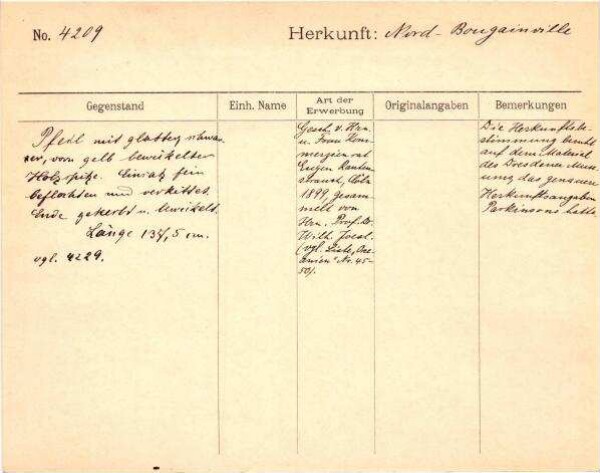 No. 4209
Herkunft: Nord-Bougainville
Gegenstand
Einh. Name
Art der
Erwerbung
Originalangaben
Bemerkungen
Pfeil mit glatter schwar-
zer, vorn gelb bewickelter
Holzspitze. Einsatz fein
beflochten und verkittet.
Ende gekerbt u. bewickelt.
Länge 137,5 cm.
vgl. 4229.
Gesch. v. Hrn.
u. Frau Kom-
merzienrat
Eugen Rauten-
strauch, Cöln
1899, gesam-
melt von
Hrn. Prof. Dr.
Wilh. Joest.
(vgl. Liste „Oze-
anien" Nr. 45-
50).
Die Herkunftsbe-
stimmung beruht
auf dem Material
des Dresdena Mus-
eums das genauere
Herkunftsangaben
Parkinsons hatte.